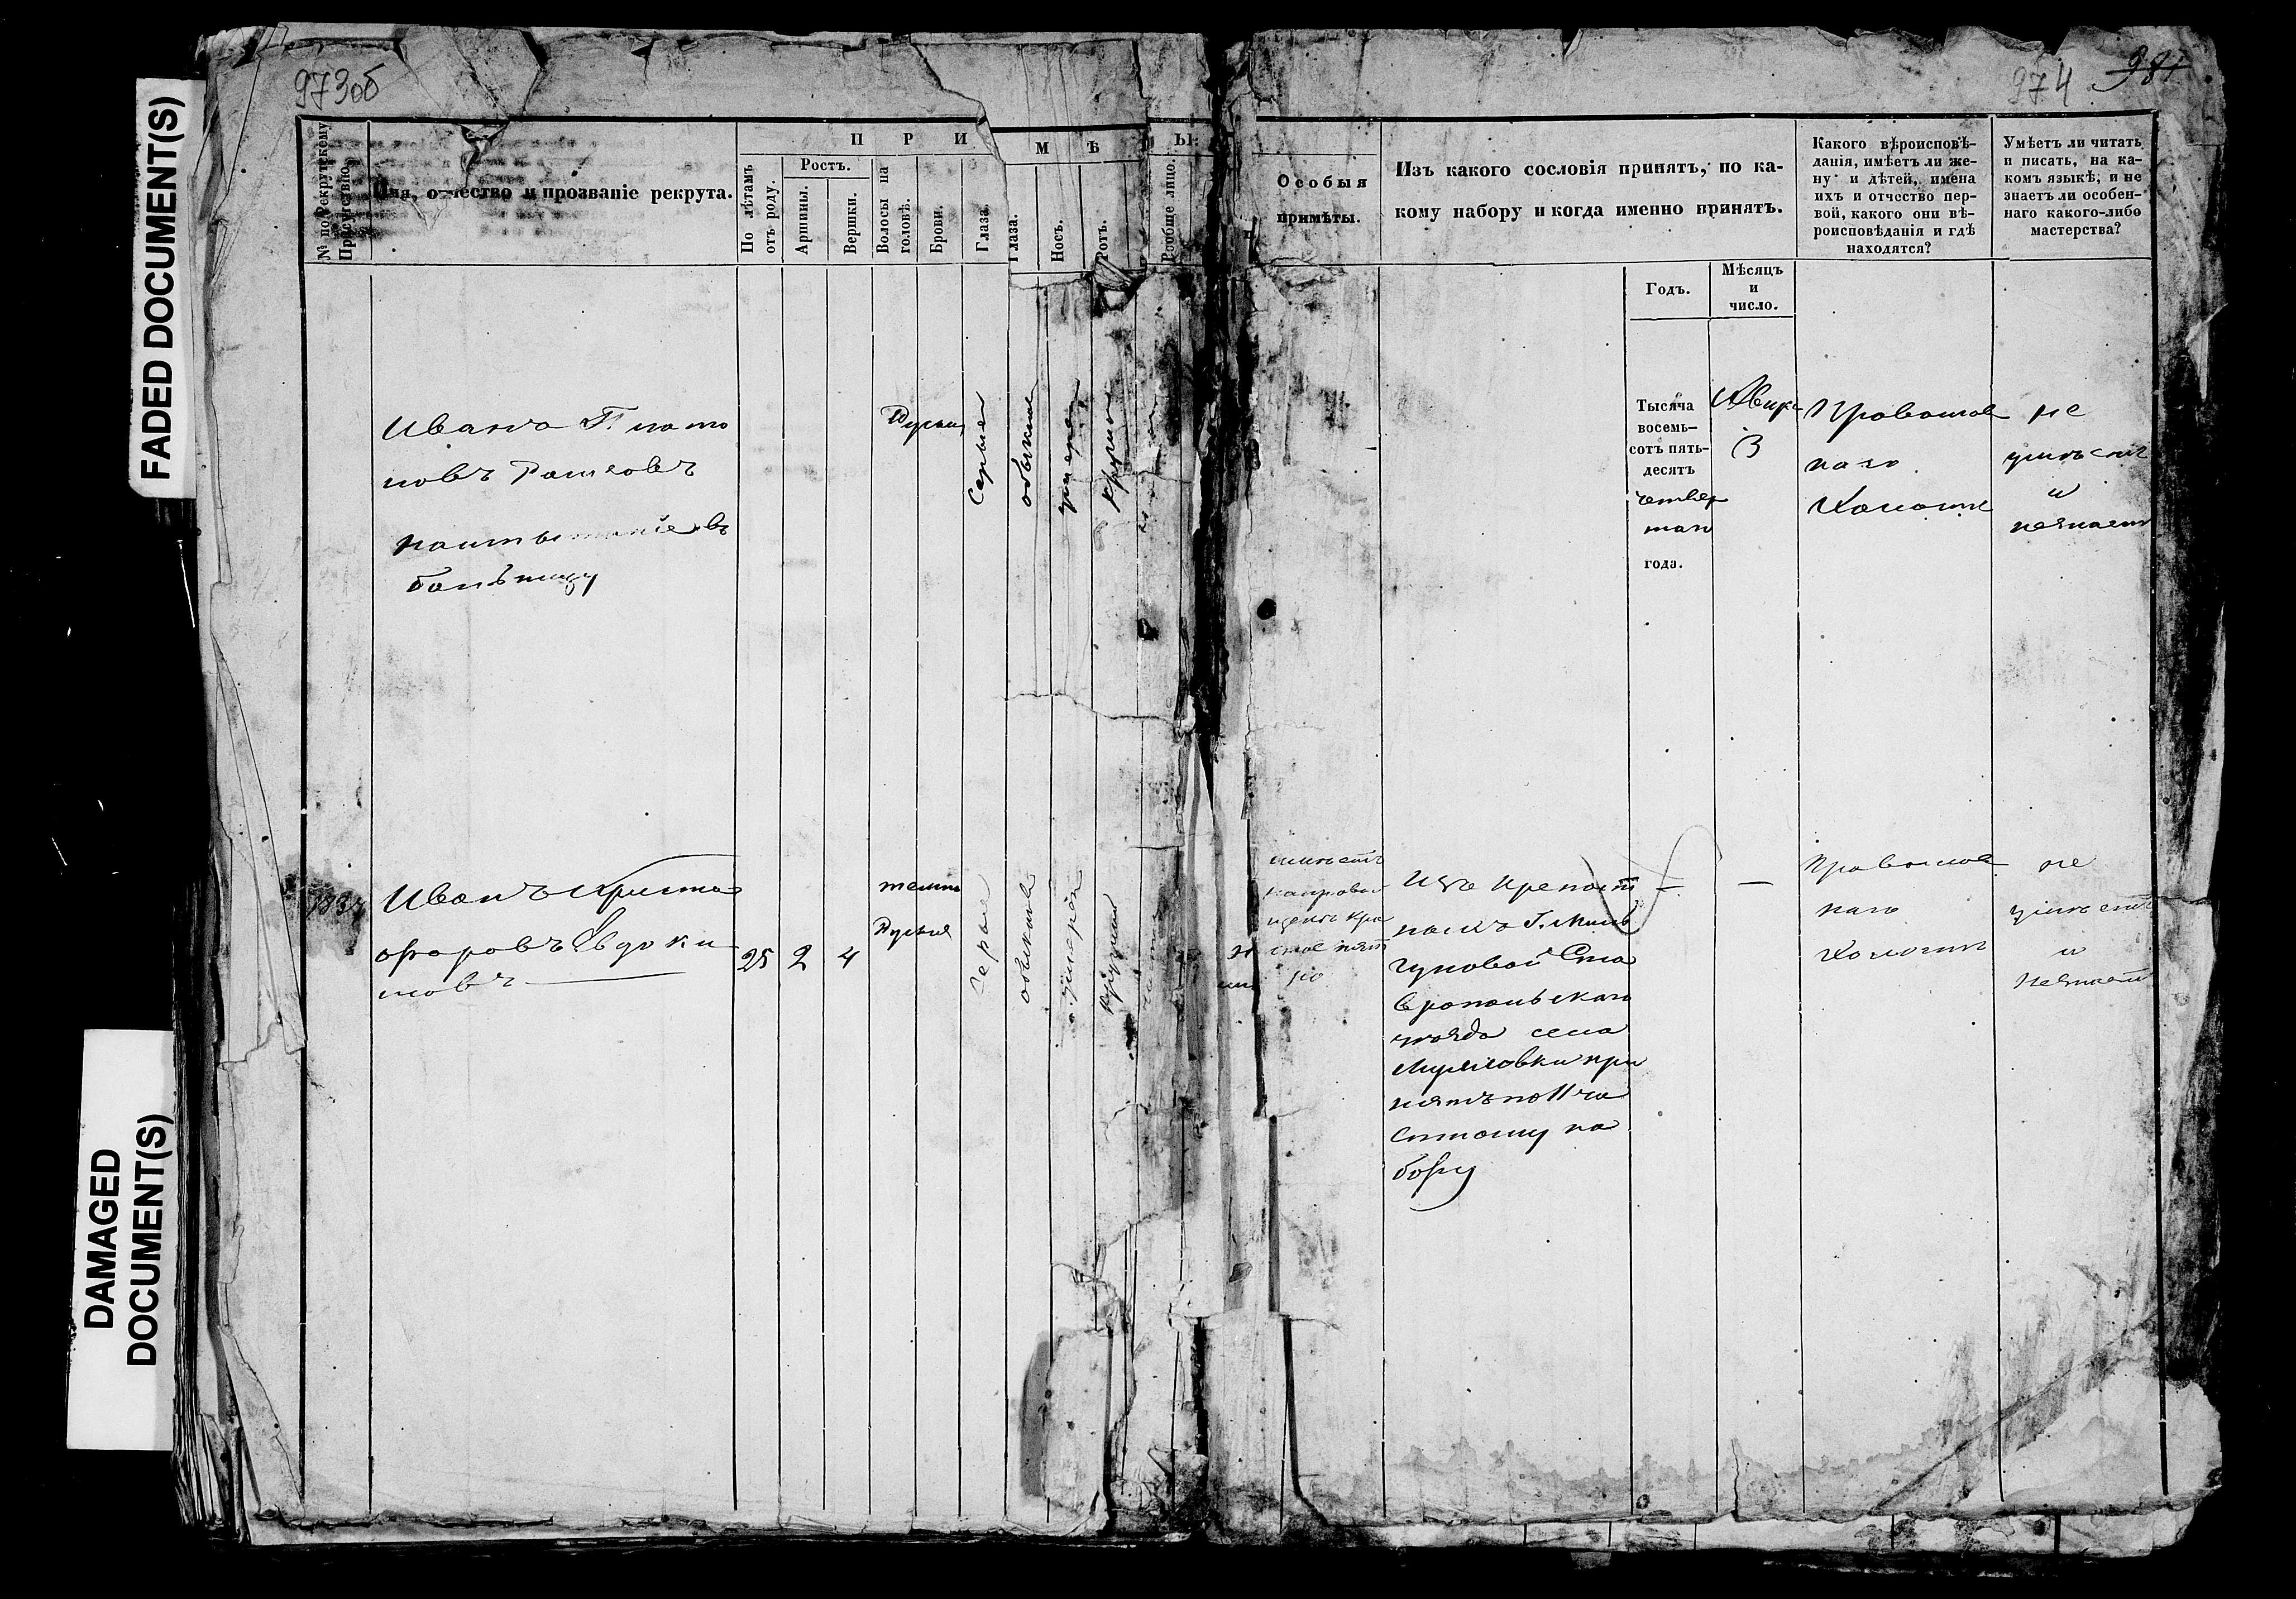 FADED DOCUMENT(S)
DAMAGED
DOCUMENT(S)
973об
974
№ по Рекрутскому
Присутствію.
Имя, отчество и прозваніе рекрута.
П Р И
М Ѣ
Ы.
По лѣтамъ
отъ роду.
Ростъ.
Аршины.
Вершки.
Волосы на
головѣ.
Брови.
Глаза.
Глаза.
Носъ.
Ротъ.
лицо.
Особыя
примѣты.
Изъ какого сословія принятъ, по ка-
кому набору и когда именно принятъ.
Годъ.
Мѣсяцъ
и
число.
Какого вѣроисповѣ-
данія, имѣетъ ли же-
ну и дѣтей, имена
ихъ и отчество пер-
вой, какого они вѣ-
роисповѣданія и гдѣ
находятся?
Умѣетъ ли читать
и писать, на ка-
комъ языкѣ, и не
знаетъ ли особен-
наго какого-либо
мастерства?
Ивана Плато
новъ
въ
больницу
Русыя
Серые
обыкнов
умерен
кругл
Тысяча
восемь-
сотъ пять-
десятъ
четвер
таго
года.
3
Православ
наго
Холостъ
не
умѣетъ
и
незнаетъ
Иванъ Христо
форовъ Евдоки
мовъ
25
2
4
темно
Русыя
серые
обыкнов
умерен
кругл
имѣетъ
направой
щекѣ кра
сное пят
но
Изъ крепост
ныхъ Г.
Ста
вропольскаго
уезда села
при
нятъ по 11 ча
стному на
бору
—
—
Православ
наго
Холостъ
не
умѣетъ
и
незнаетъ